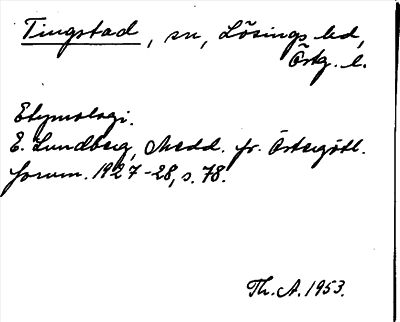 Tingstad, sn, Lösings hd,
Östg. l.
Etymologi.
E. Lundberg, Medd. fr. Östergötl.
fornm. 1927-28, s. 78.
Th. A. 1953.